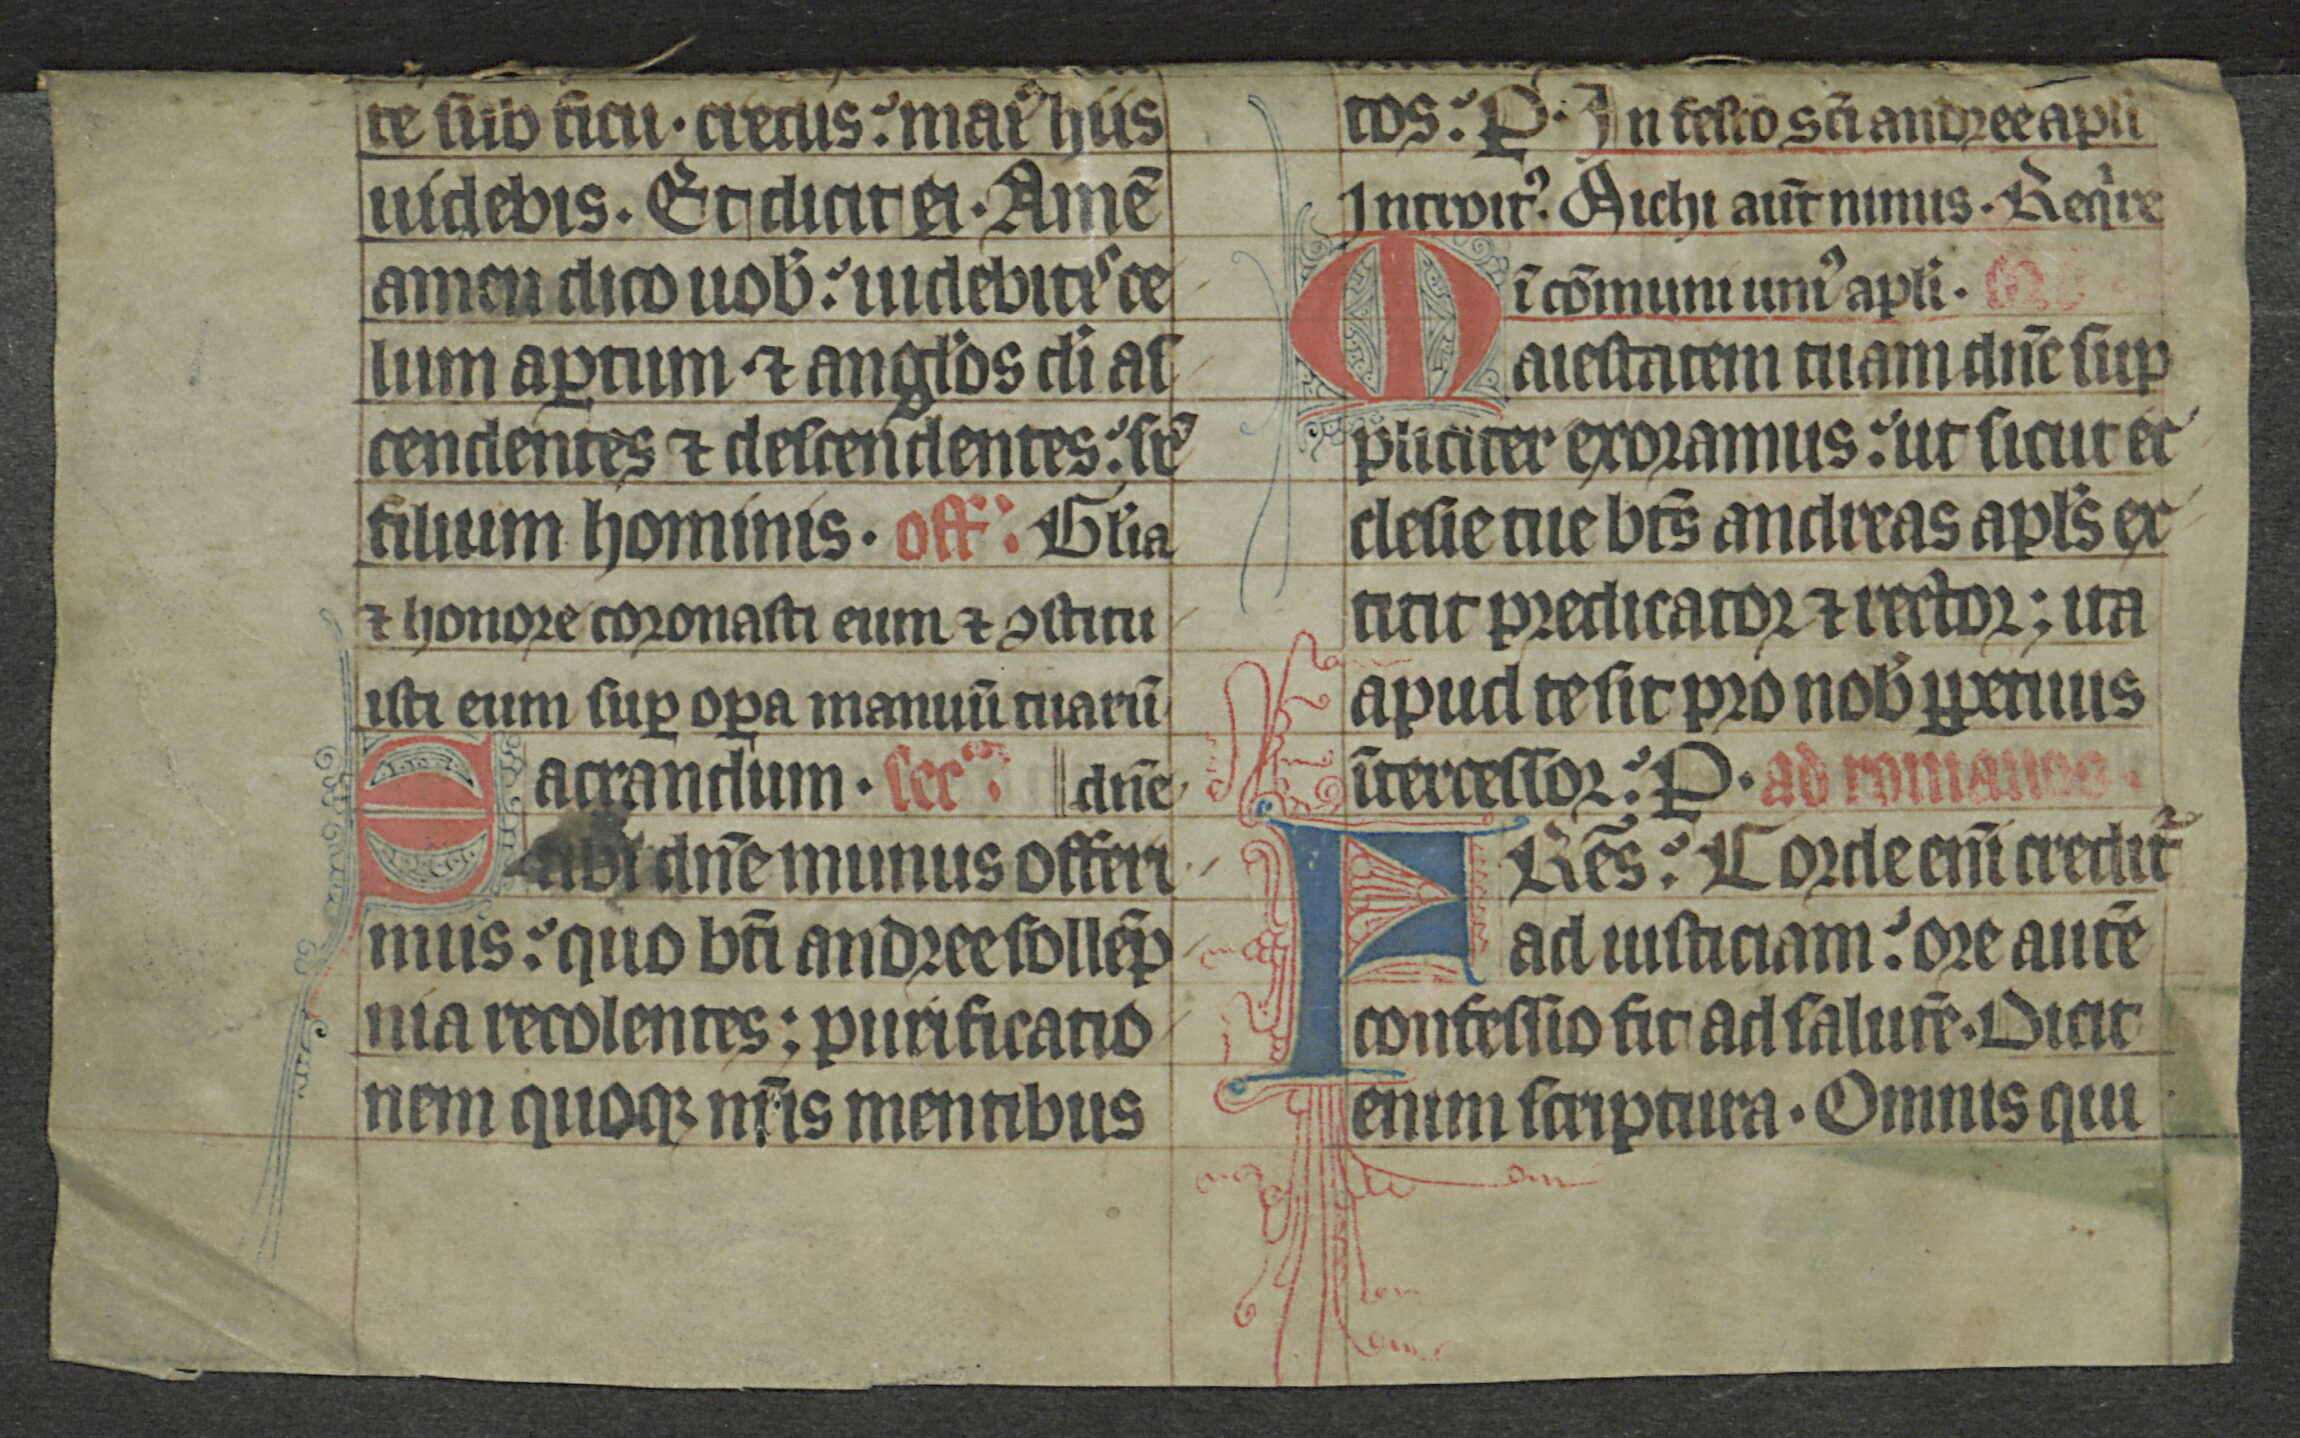 te sub ficu · credis : maiꝰ hiis
uidebis . Et dicit ei · Amē
amen dico uob̄ : uidebitis ce
lum apꝑtum · ⁊ angl̓os di̓ as
cendentes ⁊ descendentes : sr̄
filium hominis · off̄ : Gl̓ia
⁊ honore coronasti eum ⁊ ꝯstitu
isti eum suꝑ oꝑa manuū tuarū
acrandum · secᵃ dn̄e
S tibi dn̄e munus offeri
mus : quo bt̄i andree sollēp
nia recolentes ; purificatio
nem quoqꝫ nr̄is mentibus
tos : P · In festo sc̄i andree apl̓i
Introitꝰ . Michi aūt nimis · Req̓re
ī cōmuni uniꝰ apl̓i ·
M aiestatem tuam dn̄e sup
pliciter exoramus : ut sicut ec
clesie tue bt̄s andreas apl̓s ex
titit predicator ⁊ rector ; ita
apud te sit pro nob̄ ꝑpetuus
ītercessor : P · ad romanos .
F Rēs : Corde enī creditᷣ
ad iusticiam : ore autē
confessio fit ad salutē · Dicit
enim scriptura · Omnis qui